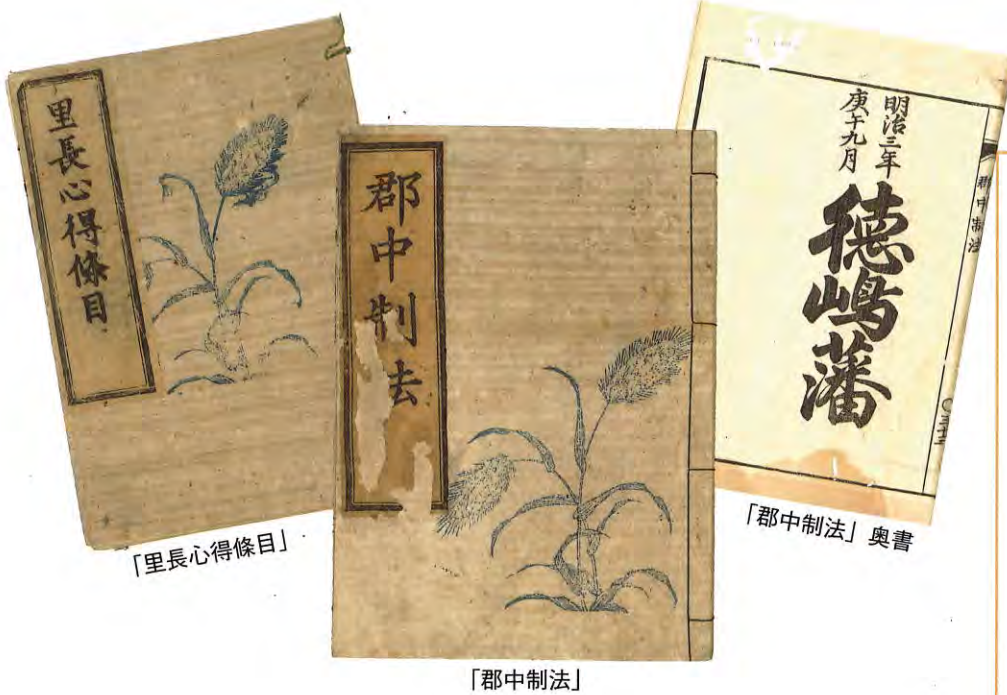 里長心得條目
「里長心得條目」
郡中制法
「郡中制法」
明治三年
庚午九月
徳嶋藩
郡中制法
「郡中制法」奥書